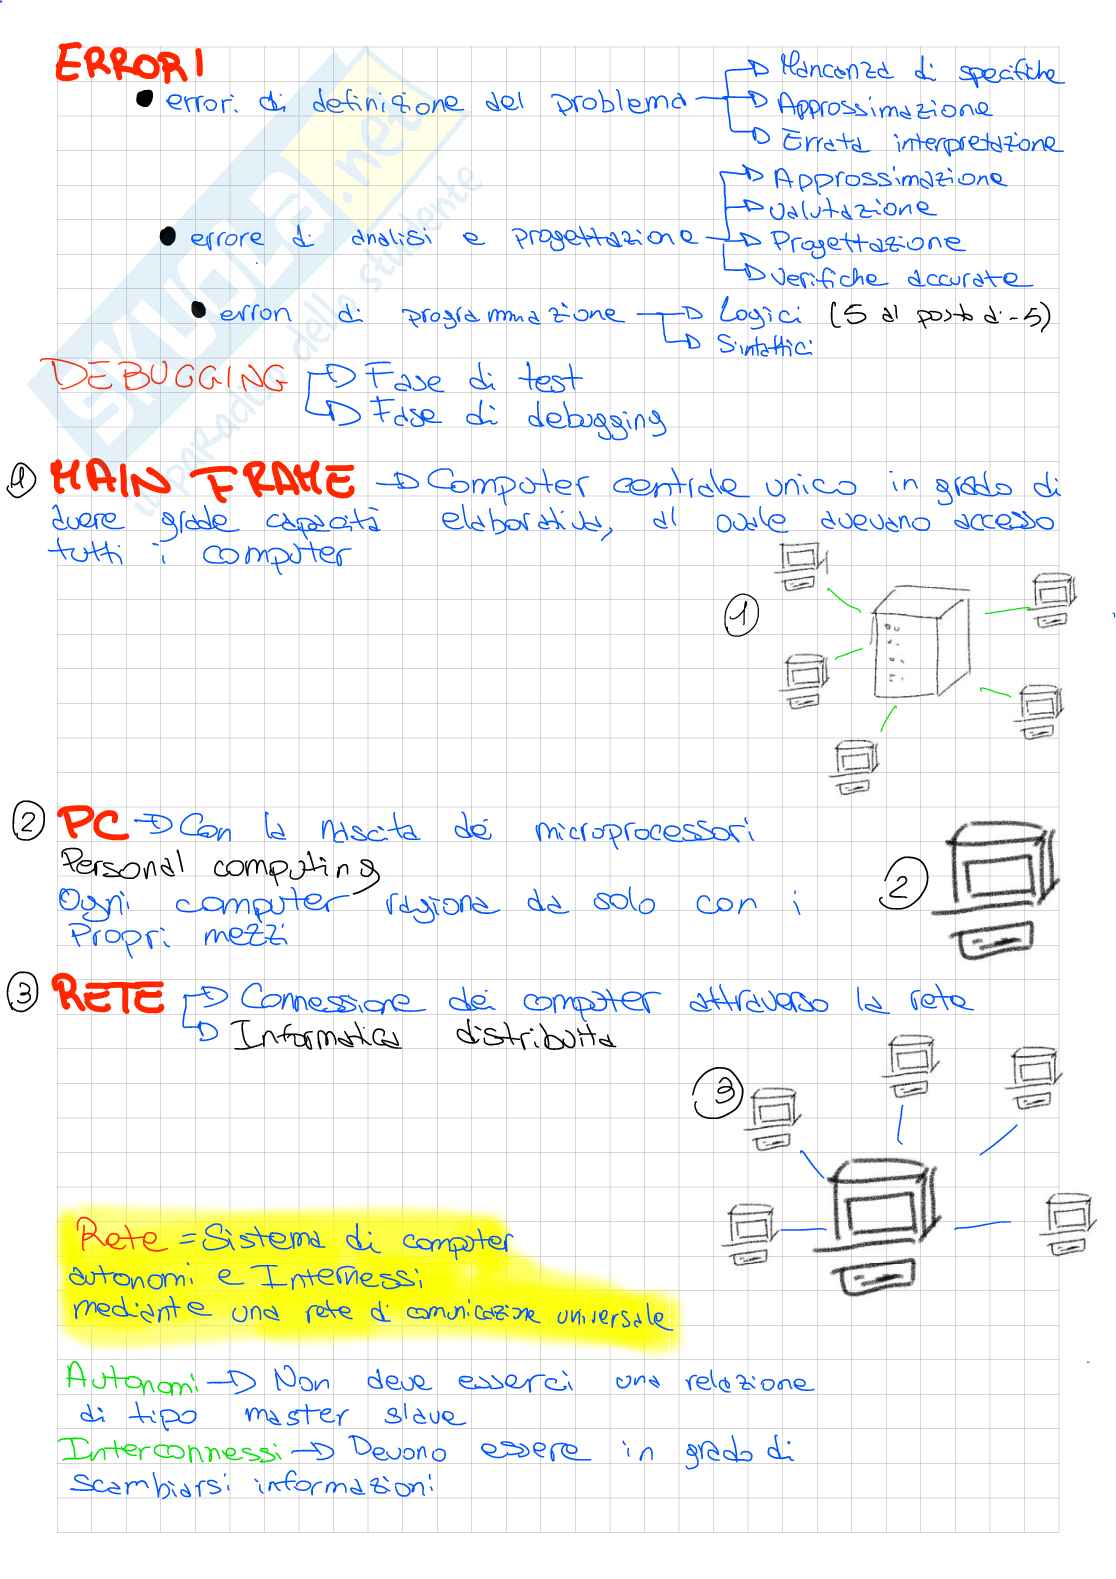 ERRORI
errori di definizione del problema
Mancanza di specifiche
Approssimazione
Errata interpretazione
errore di analisi e progettazione
Approssimazione
Valutazione
Progettazione
Verifiche accurate
errori di programmazione
Logici (5 al posto di -5)
Sintattici
DEBUGGING
Fase di test
Fase di debugging
1 MAIN FRAME Computer centrale unico in grado di
avere grade capacità elaborativa, al quale avevano accesso
tutti i computer
1
2 PC Con la nascita dei microprocessori
Personal computing
Ogni computer ragiona da solo con i
Propri mezzi
2
3 RETE Connessione dei computer attraverso la rete
Informatica distribuita
3
Rete = Sistema di computer
autonomi e Internessi
mediante una rete di comunicazione universale
Autonomi Non deve esserci una relazione
di tipo master slave
Interconnessi Devono essere in grado di
scambiarsi informazioni
SKUOLA.net
il paradiso dello studente